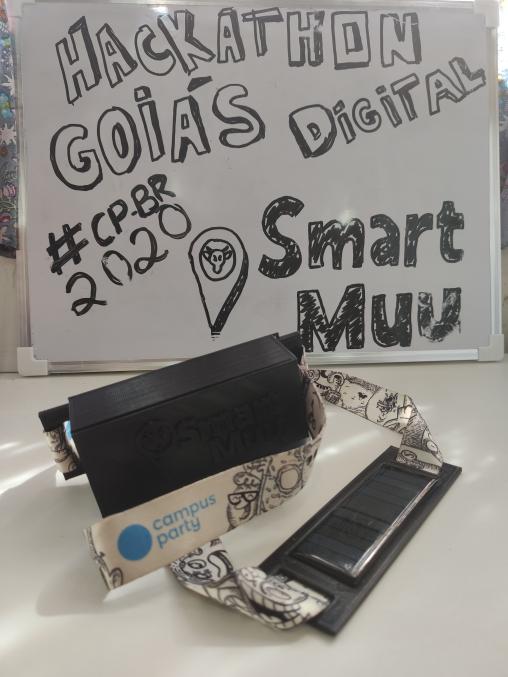 HACKATHON
GOIÁS DIGITAL
#CP-BR
2020
Smart
Muu
Smart
Muu
campus
party